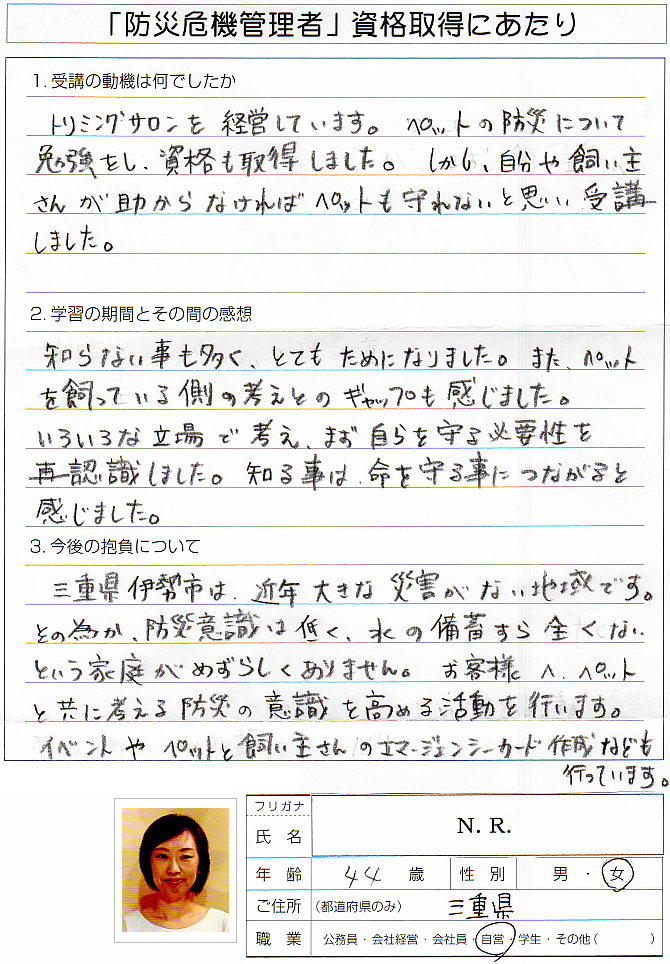 「防災危機管理者」資格取得にあたり
1. 受講の動機は何でしたか
トリミングサロンを経営しています。ペットの防災について
勉強をし、資格も取得しました。しかし、自分や飼い主
さんが助からなければペットも守れないと思い受講
しました。
2. 学習の期間とその間の感想
知らない事も多く、とてもためになりました。また、ペット
を飼っている側の考えとのギャップも感じました。
いろいろな立場で考え、まず自らを守る必要性を
再認識しました。知る事は、命を守る事につながると
感じました。
3. 今後の抱負について
三重県伊勢市は、近年大きな災害がない地域です。
その為か、防災意識は低く、水の備蓄すら全くない
という家庭がめずらしくありません。お客様へ、ペット
と共に考える防災の意識を高める活動を行います。
イベントやペットと飼い主さんのエマージェンシーカード作成なども
行っています。
フリガナ
氏名 N. R.
年齢 44 歳 性別 男・女
ご住所 (都道府県のみ) 三重県
職業 公務員・会社経営・会社員・自営・学生・その他( )